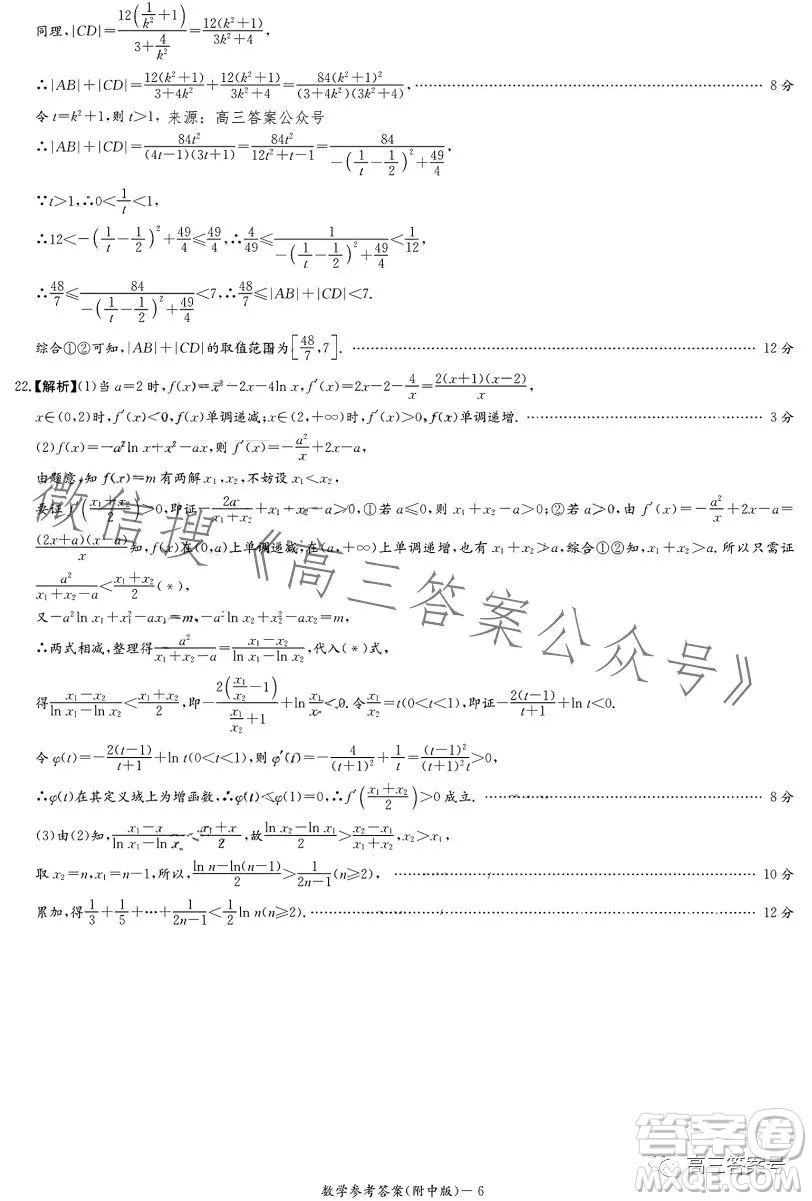 同理,|CD|=\frac{12(\frac{1}{k^2}+1)}{3+\frac{4}{k^2}}=\frac{12(k^2+1)}{3k^2+4},
∴|AB|+|CD|=\frac{12(k^2+1)}{3+4k^2}+\frac{12(k^2+1)}{3k^2+4}=\frac{84(k^2+1)^2}{(3+4k^2)(3k^2+4)},…… 8 分
令 t=k^2+1,则 t>1, 来源: 高三答案公众号
∴|AB|+|CD|=\frac{84t^2}{(4t-1)(3t+1)}=\frac{84t^2}{12t^2+t-1}=\frac{84}{-(\frac{1}{t}-\frac{1}{2})^2+\frac{49}{4}},
∵t>1,∴0<\frac{1}{t}<1,
∴12<-(\frac{1}{t}-\frac{1}{2})^2+\frac{49}{4}≤\frac{49}{4},∴\frac{4}{49}≤\frac{1}{-(\frac{1}{t}-\frac{1}{2})^2+\frac{49}{4}}<\frac{1}{12},
∴\frac{48}{7}≤\frac{84}{-(\frac{1}{t}-\frac{1}{2})^2+\frac{49}{4}}<7,∴\frac{48}{7}≤|AB|+|CD|<7.
综合①②可知,|AB|+|CD|的取值范围为[\frac{48}{7},7].…… 12 分
22.【解析】(1)当 a=2 时,f(x)=x^2-2x-4ln x,f′(x)=2x-2-\frac{4}{x}=\frac{2(x+1)(x-2)}{x},
x∈(0,2)时,f′(x)<0,f(x)单调递减;x∈(2,+∞)时,f′(x)>0,f(x)单调递增.…… 3 分
(2)f(x)=-a^2ln x+x^2-ax,则 f′(x)=-\frac{a^2}{x}+2x-a,
由题意,知 f(x)=m 有两解 x_1,x_2,不妨设 x_1<x_2,
要证 f′(\frac{x_1+x_2}{2})>0,即证-\frac{2a^2}{x_1+x_2}+x_1+x_2-a>0,①若 a≤0,则 x_1+x_2-a>0;②若 a>0,由 f′(x)=-\frac{a^2}{x}+2x-a=
\frac{(2x+a)(x-a)}{x}知,f(x)在(0,a)上单调递减,在(a,+∞)上单调递增,也有 x_1+x_2>a,综合①②知,x_1+x_2>a. 所以只需证
\frac{a^2}{x_1+x_2-a}<\frac{x_1+x_2}{2}(*),
又-a^2ln x_1+x_1^2-ax_1=m,-a^2ln x_2+x_2^2-ax_2=m,
∴两式相减,整理得\frac{a^2}{x_1+x_2-a}=\frac{x_1-x_2}{ln x_1-ln x_2},代入(*)式,
得\frac{x_1-x_2}{ln x_1-ln x_2}<\frac{x_1+x_2}{2},即-\frac{2(\frac{x_1}{x_2}-1)}{\frac{x_1}{x_2}+1}+ln\frac{x_1}{x_2}<0.令\frac{x_1}{x_2}=t(0<t<1),即证-\frac{2(t-1)}{t+1}+ln t<0.
令 φ(t)=-\frac{2(t-1)}{t+1}+ln t(0<t<1),则 φ′(t)=-\frac{4}{(t+1)^2}+\frac{1}{t}=\frac{(t-1)^2}{(t+1)^2t}>0,
∴φ(t)在其定义域上为增函数,∴φ(t)<φ(1)=0,∴f′(\frac{x_1+x_2}{2})>0 成立.…… 8 分
(3)由(2)知,\frac{x_1-x_2}{ln x_1-ln x_2}<\frac{x_1+x_2}{2},故\frac{ln x_2-ln x_1}{2}>\frac{x_2-x_1}{x_2+x_1},x_2>x_1,
取 x_2=n,x_1=n-1,所以,\frac{ln n-ln(n-1)}{2}>\frac{1}{2n-1}(n≥2),…… 10 分
累加,得\frac{1}{3}+\frac{1}{5}+…+\frac{1}{2n-1}<\frac{1}{2}ln n(n≥2).…… 12 分
微信搜《高三答案公众号》
答案卷
MXQE.COM
高三答案号
数学参考答案(附中版)-6